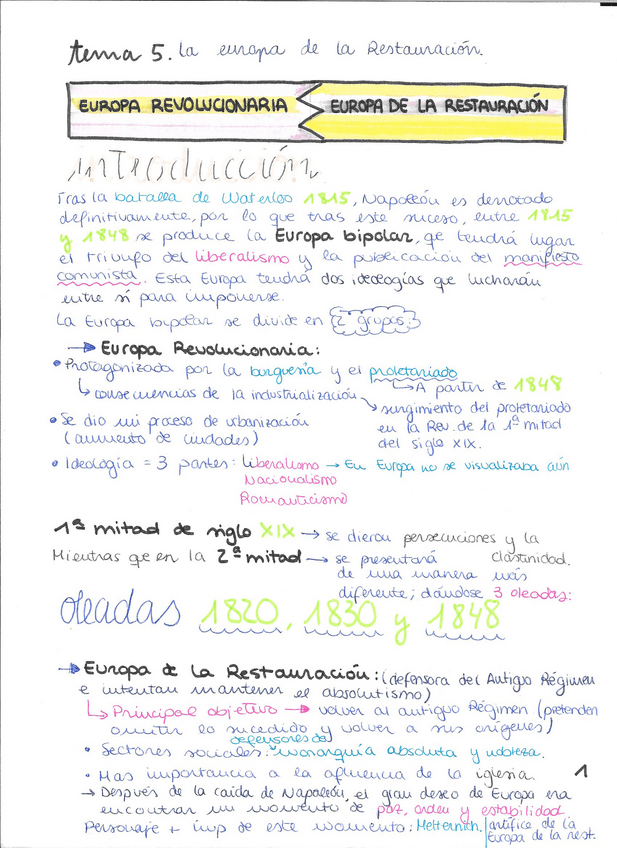 tema 5. La europa de la Restauración.
EUROPA REVOLUCIONARIA EUROPA DE LA RESTAURACIÓN
introducción
Tras la batalla de Waterloo 1815, Napoleón es derrotado
definitivamente, por lo que tras este suceso, entre 1815
y 1848 se produce la Europa bipolar, qe tendrá lugar
el triunfo del liberalismo y la publicación del manifiesto
comunista. Esta Europa tendrá dos ideologías qe lucharán
entre sí para imponerse.
La Europa bipolar se divide en 2 grupos:
→ Europa Revolucionaria:
• Protagonizada por la burguesía y el proletariado
↳ A partir de 1848
↳ consecuencias de la industrialización
↘ surgimiento del proletariado
en la Rev. de la 1ª mitad
del siglo XIX.
• Se dio un proceso de urbanización
(aumento de ciudades)
• Ideología = 3 partes: Liberalismo → En Europa no se visualizaba aún
Nacionalismo
Romanticismo
1ª mitad de siglo XIX → se dieron persecuciones y la
clastinidad.
Mientras qe en la 2ª mitad → se presentará
de una manera más
diferente; dándose 3 oleadas:
oleadas 1820, 1830 y 1848
→ Europa de la Restauración: (defensora del Antiguo Régimen
e intentan mantener el absolutismo)
↳ Principal objetivo → volver al antiguo Régimen (pretenden
omitir lo sucedido y volver a sus orígenes)
• Sectores sociales: defensores de monarquía absoluta y nobleza.
• Mas importancia a la afluencia de la iglesia.
→ Después de la caída de Napoleón, el gran deseo de Europa era
encontrar un momento de paz, orden y estabilidad.
Personaje + imp de este momento: Metternich. artífice de la
Europa de la rest.
1